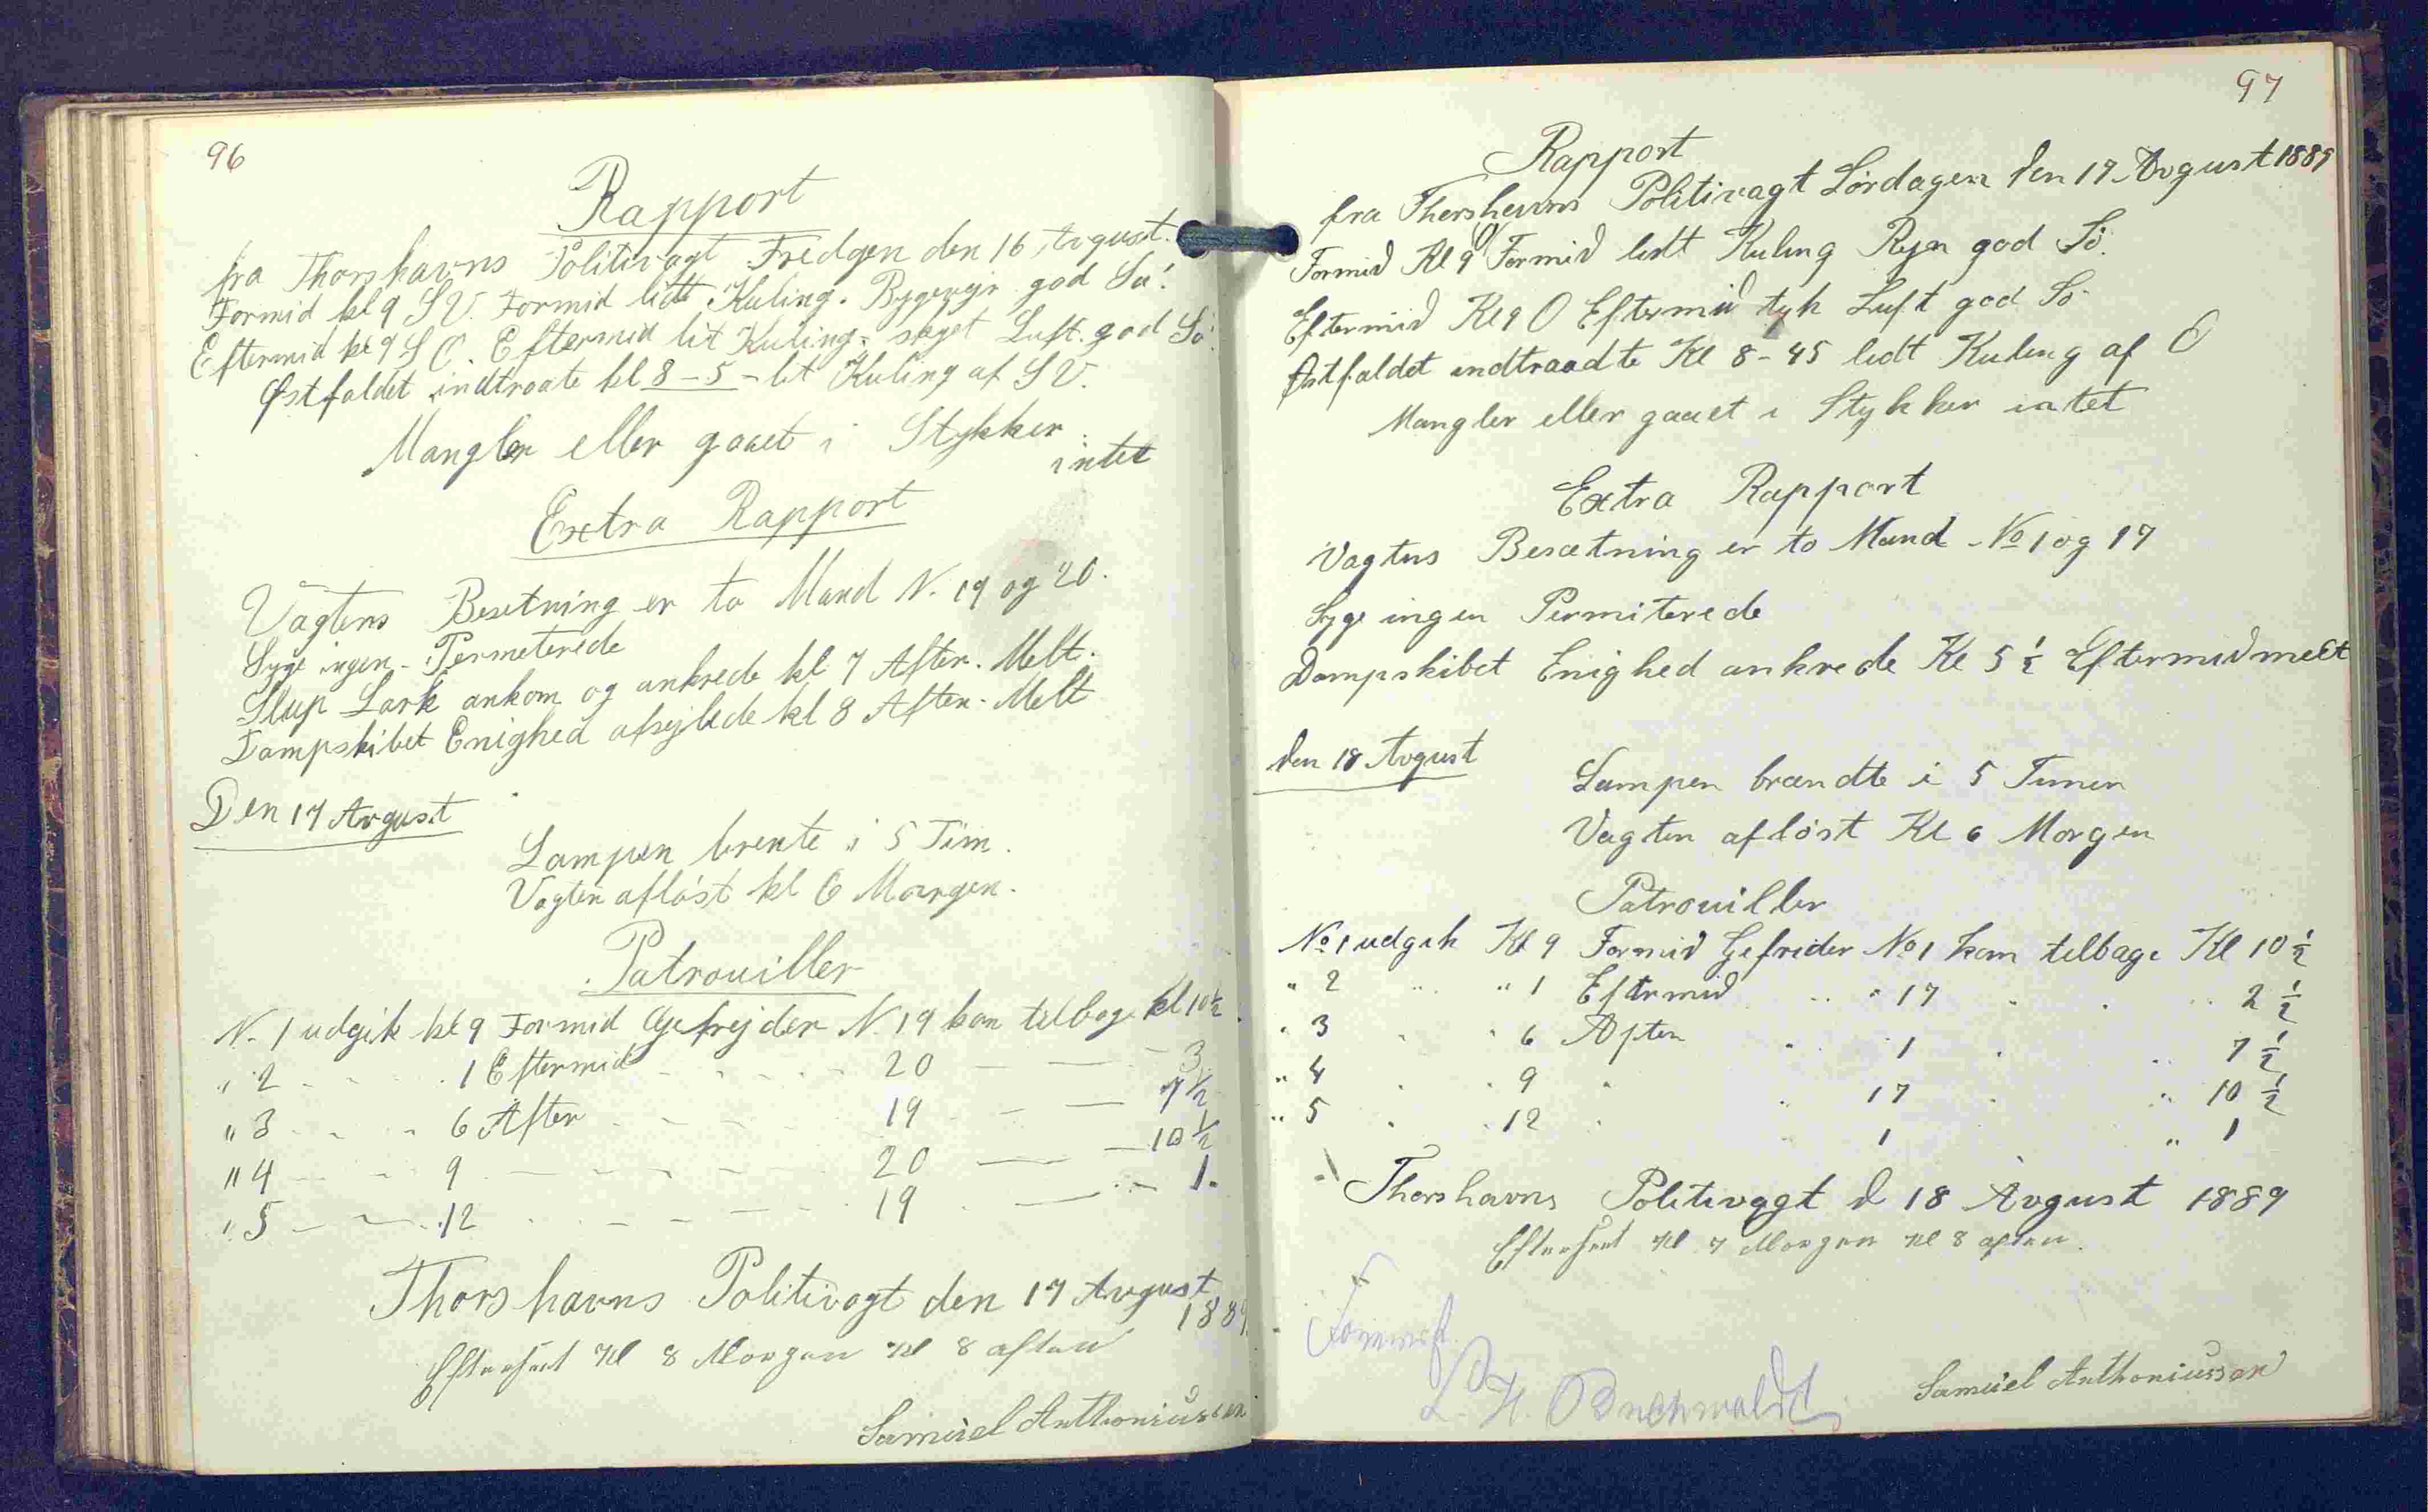 96
Rapport
fra Thorshavns Politivagt Fredgen den 16 Avgust.
Formid kl 9 S V. Formid lidt Kuling. Bygevejr god Sø.
Eftermid kl 9 S O. Eftermid lit Kuling. skyet Luft. god Sø.
Østfaldet indtraate kl 8-5- lit Kuling af S V.
Mangler eller gaaet i Stykker
intet
Extra Rapport
Vagtens Besetning er to Mand N. 19 og 20.
Syge ingen - Permeterede
Slup Lark ankom og ankrede kl 7 Aften. Melt.
Dampskibet Enighed afsejlede kl 8 Aften. Melt
Den 17 Avgust
Lampen brente i 5 Tim.
Vagten afløst kl 6 Morgen.
Patrouiller
N. 1 udgik kl 9 Formid Gefrejder N. 19 kom tilbage kl 10½
" 2 1 Eftermid 20 3
" 3 6 Aften 19 7½
" 4 9 20 10½
" 5 12 19 1.
Thorshavns Politivagt den 17 Avgust
1889
Efterset Kl 8 Morgen Kl 8 aften
Samúel Anthoniússen
97
Rapport
fra Thorshavns Politivagt Lørdagen den 17 Avgust 1889
Formid Kl 9 O Formid lidt Kuling Rejn god Sø.
Eftermid Kl 9 O Eftermid tyk Luft god Sø
Østfaldet indtraadte Kl 8-45 lidt Kuling af O
Mangler eller gaaet i Stykker intet
Extra Rapport
Vagtens Besætning er to Mand No 1 og 17
Syge ingen Permiterede
Dampskibet Enighed ankrede Kl 5½ Eftermid melt
den 18 Avgust
Lampen brændte i 5 Timer
Vagten afløst Kl 6 Morgen
Patrouiller
No 1 udgik Kl 9 Formid Gefreider No 1 kom tilbage Kl 10½
" 2 " 1 Eftermid " 17 2½
" 3 " 6 Aften 1 7½
" 4 9 17 10½
" 5 12 1 " 1
Thorshavns Politivagt d 18 Avgust 1889
Efterset Kl 7 Morgen Kl 8 aften.
L. H. Buchwaldt
Samúel Anthoniússen